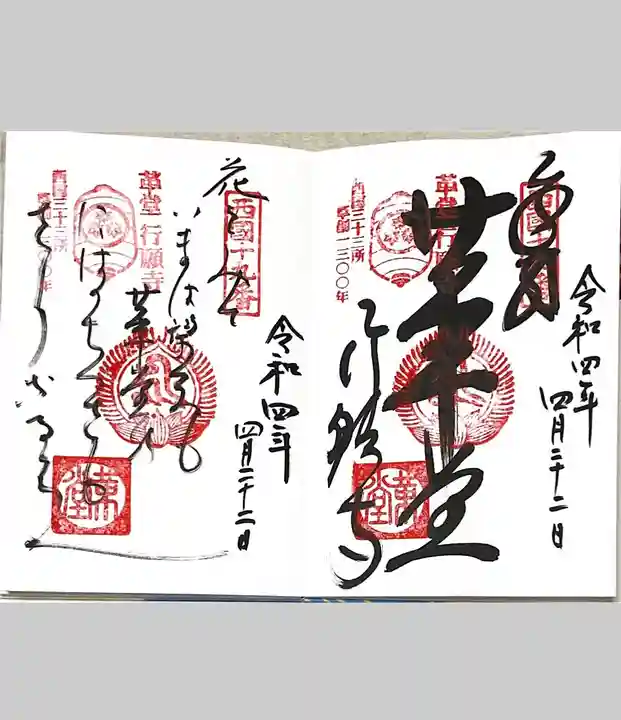 令和四年
四月二十二日
奉拝
西國十九番
革堂
革堂 行願寺
行願寺
西国三十三所
草創一三〇〇年
令和四年
四月二十二日
西國十九番
花をみて
いまは望も
革堂 行願寺
革堂の
にはのちくさも
西国三十三所
草創一三〇〇年